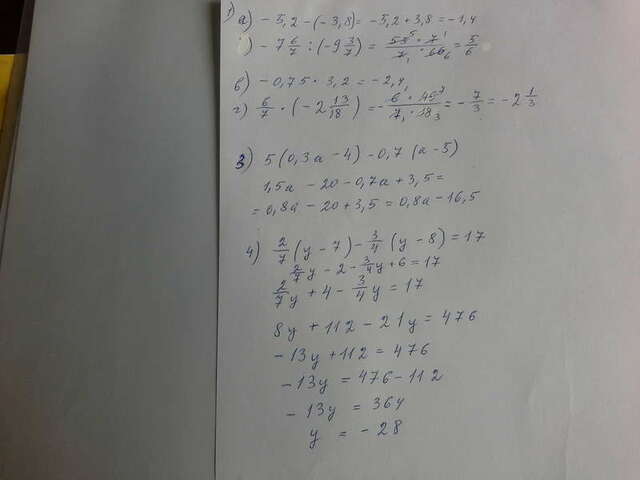 1) а) - 5,2 - (- 3,8) = - 5,2 + 3,8 = - 1,4
) - 7 6/7 : (- 9 3/7) = 55⁵ · 7¹ / 7₁ · 66₆ = 5/6
в) - 0,75 · 3,2 = - 2,4
г) 6/7 · (- 2 13/18) = - 6¹ · 49⁷ / 7₁ · 18₃ = - 7/3 = - 2 1/3
3) 5 (0,3a - 4) - 0,7 (a - 5)
1,5a - 20 - 0,7a + 3,5 =
= 0,8a - 20 + 3,5 = 0,8a - 16,5
4) 2/7 (y - 7) - 3/4 (y - 8) = 17
2/7 y - 2 - 3/4 y + 6 = 17
2/7 y + 4 - 3/4 y = 17
8y + 112 - 21y = 476
- 13y + 112 = 476
- 13y = 476 - 112
- 13y = 364
y = - 28